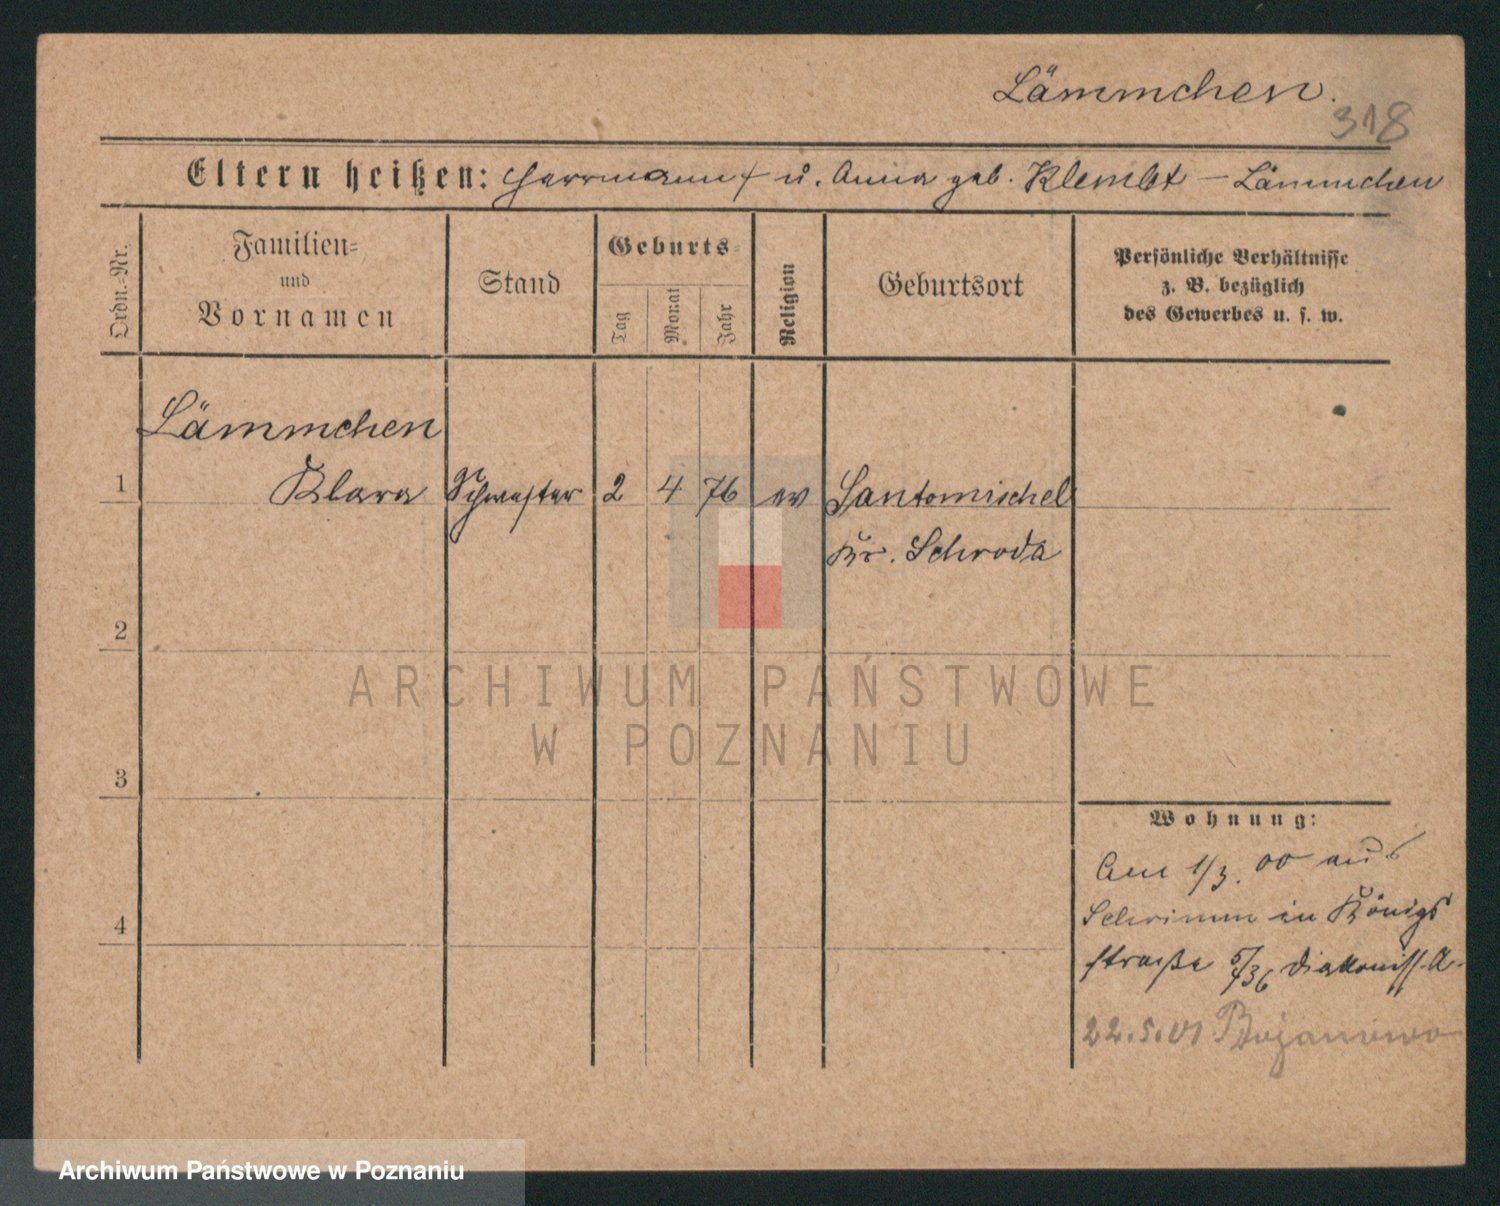 Lämmchen.
318
Eltern heißen: Herrmann † u. Anna geb. Klembt – Lämmchen
Ordn.-Nr.
Familien-
und
Vornamen
Stand
Geburts-
Tag
Monat
Jahr
Religion
Geburtsort
Persönliche Verhältnisse
z. B. bezüglich
des Gewerbes u. s. w.
Lämmchen
1 Klara Schwester 2 4 76 ev Santomischel
Kr. Schroda
2
ARCHIWUM PAŃSTWOWE
W POZNANIU
3
Wohnung:
Am 1/3. 00 aus
4
Schrimm in Königs
straße 5/36 Diakoniss. A.
22.5.01 Bojanowo
Archiwum Państwowe w Poznaniu